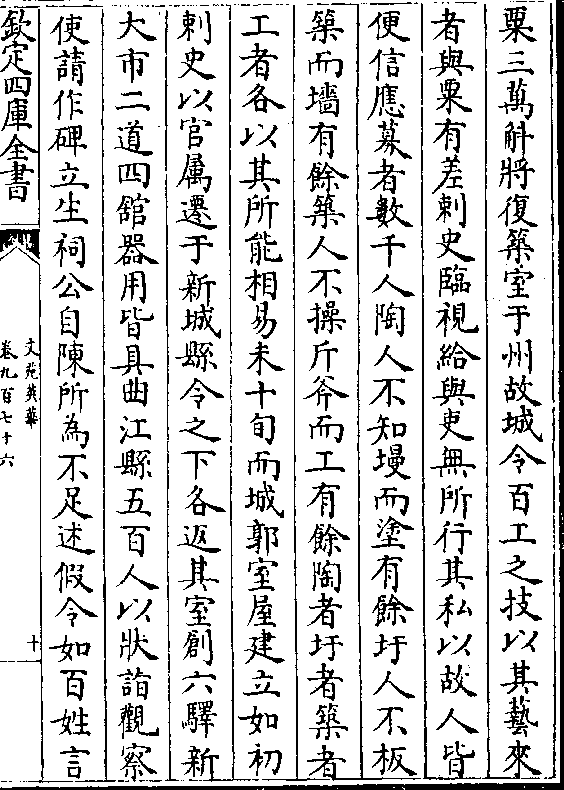 粟三萬斛將復築室于州故城令百工之技以其藝來
者與粟有差刺史臨視給與吏無所行其私以故人皆
便信應募者數千人陶人不知墁而塗有餘圬人不板
築而墻有餘築人不操斤斧而工有餘陶者圬者築者
工者各以其所能相易未十旬而城郭室屋建立如初
刺史以官屬遷于新城縣令之下各返其室創六驛新
大市二道四舘器用皆具曲江縣五百人以狀詣觀察
使請作碑立生祠公自陳所為不足述假令如百姓言
欽定四庫全書
文苑英華
卷九百七十六
十